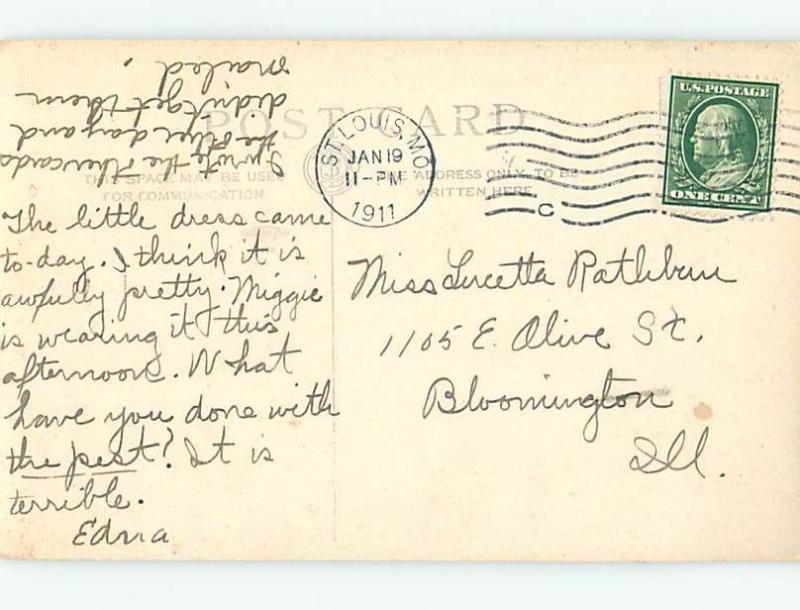 I wrote the other cards
the other day and
didn't get them
mailed.
POST CARD
THIS SPACE MAY BE USED
FOR COMMUNICATION
THE ADDRESS ONLY TO BE
WRITTEN HERE
ST. LOUIS, MO.
JAN 19
11-PM
1911
C
U.S. POSTAGE
ONE CENT
The little dress came
to-day. I think it is
awfully pretty. Miggie
is wearing it this
afternoon. What
have you done with
the pest? It is
terrible.
Edna
Miss Lucetta Rathbun
1105 E. Olive St.
Bloomington
Ill.